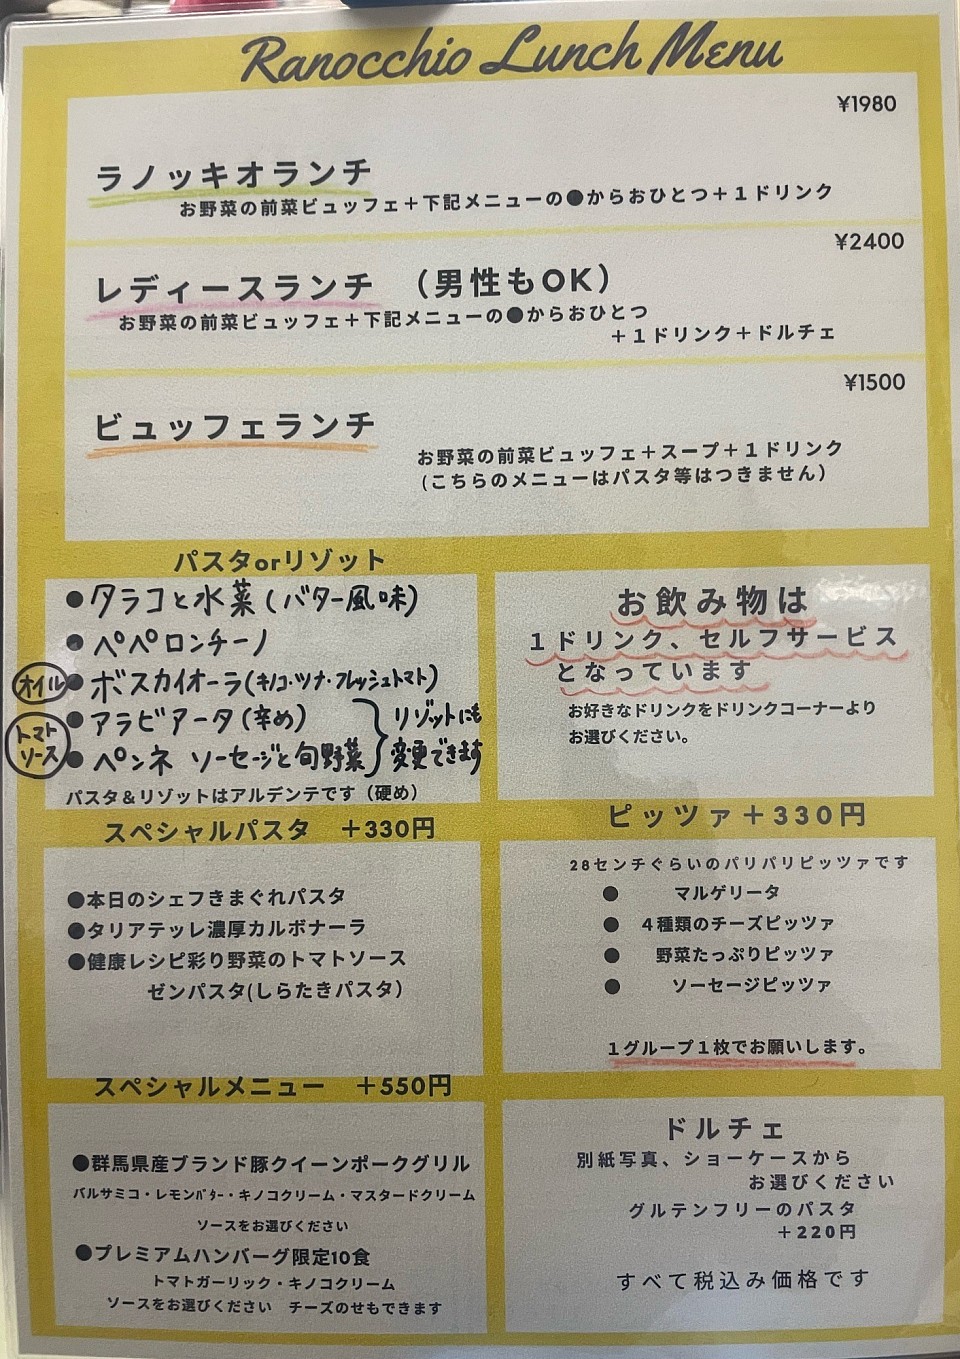 Ranocchio Lunch Menu
¥1980
ラノッキオランチ
お野菜の前菜ビュッフェ＋下記メニューの●からおひとつ＋１ドリンク
¥2400
レディースランチ （男性もOK）
お野菜の前菜ビュッフェ＋下記メニューの●からおひとつ
＋１ドリンク＋ドルチェ
¥1500
ビュッフェランチ
お野菜の前菜ビュッフェ＋スープ＋１ドリンク
（こちらのメニューはパスタ等はつきません）
パスタorリゾット
●タラコと水菜（バター風味）
●ペペロンチーノ
オイル●ボスカイオーラ（キノコ・ツナ・フレッシュトマト）
●アラビアータ（辛め）
トマトソース
●ペンネ ソーセージと旬野菜
リゾットにも
変更できます
パスタ＆リゾットはアルデンテです（硬め）
お飲み物は
１ドリンク、セルフサービス
となっています
お好きなドリンクをドリンクコーナーより
お選びください。
スペシャルパスタ ＋330円
●本日のシェフきまぐれパスタ
●タリアテッレ濃厚カルボナーラ
●健康レシピ彩り野菜のトマトソース
ゼンパスタ(しらたきパスタ）
ピッツァ＋330円
28センチぐらいのパリパリピッツァです
● マルゲリータ
● ４種類のチーズピッツァ
● 野菜たっぷりピッツァ
● ソーセージピッツァ
１グループ１枚でお願いします。
スペシャルメニュー ＋550円
●群馬県産ブランド豚クイーンポークグリル
バルサミコ・レモンﾊﾞﾀｰ・キノコクリーム・マスタードクリーム
ソースをお選びください
●プレミアムハンバーグ限定10食
トマトガーリック・キノコクリーム
ソースをお選びください チーズのせもできます
ドルチェ
別紙写真、ショーケースから
お選びください
グルテンフリーのパスタ
＋220円
すべて税込み価格です